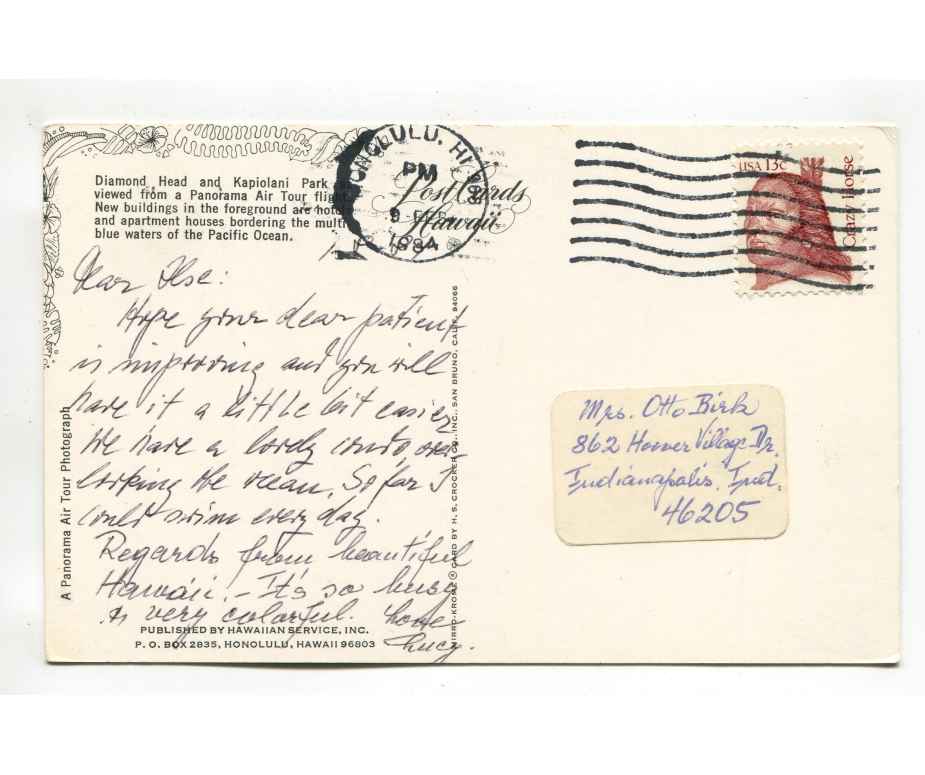 Diamond Head and Kapiolani Park
viewed from a Panorama Air Tour flight.
New buildings in the foreground are hotels
and apartment houses bordering the multi
blue waters of the Pacific Ocean.
HONOLULU, HI
PM
9 FEB
1984
Post Cards
Hawaii
USA 13c
Crazy Horse
Dear Ilse:
Hope your dear patient
is improving and you will
have it a little bit easier,
We have a lovely condo, over-
looking the ocean. So far I
could swim every day.
Regards from beautiful
Hawaii. - It's so busy
very colorful. Love
Lucy.
A Panorama Air Tour Photograph
PUBLISHED BY HAWAIIAN SERVICE, INC.
P. O. BOX 2835, HONOLULU, HAWAII 96803
MIRRO-KROME ® CARD BY H. S. CROCKER CO., INC., SAN BRUNO, CALIF. 94066
Mrs. Otto Birk
862 Hoover Village Dr.
Indianapolis, Ind.
46205